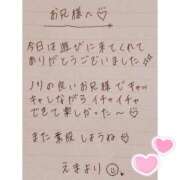 お兄様へ♡
今日は遊びに来てくれて
ありがとうございました
ノリの良いお兄様でキャッ
キャしながらイチャイチャ
できて楽しかった〜
また素股しようね♡
えまより